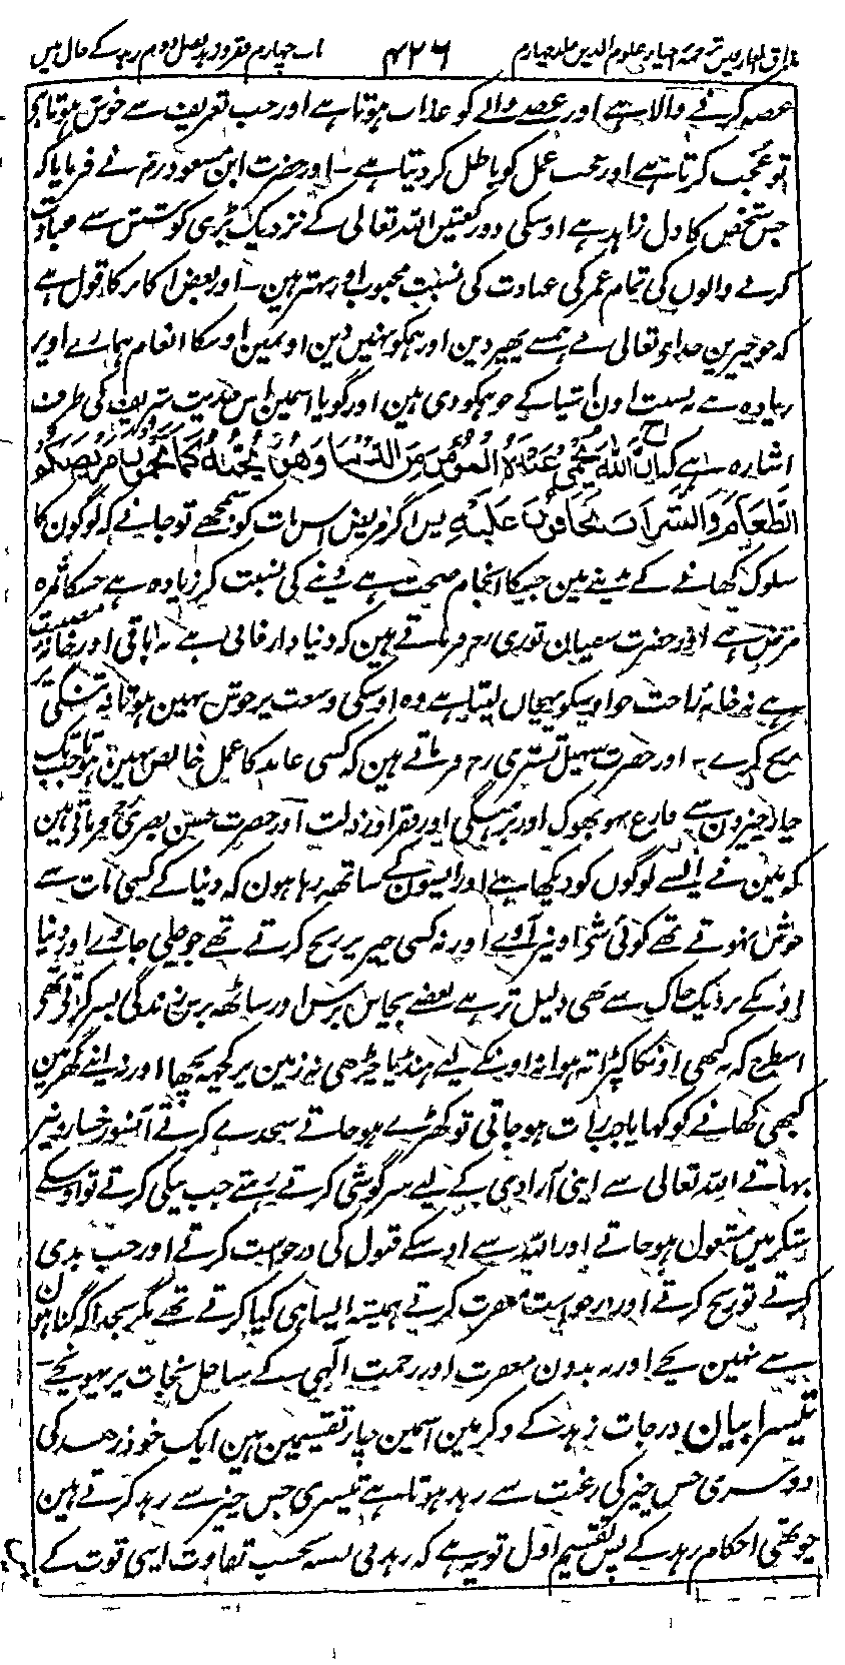 مذاق العارفین ترجمہ احیاء علوم الدین جلد چہارم ۴۲۶ باب چہارم فقر و زہد فصل دوم زہد کے حال میں
غصہ کرنے والا ہے اور غصے والے کو عذاب ہوتا ہے اور جب تعریف سے خوش ہوتا ہے
تو عُجب کرتا ہے اور عجب عمل کو باطل کر دیتا ہے ۔ اور حضرت ابن مسعود رض نے فرمایا کہ
جس شخص کا دل زاہد ہے اوسکی دو رکعتیں اللہ تعالی کے نزدیک بڑی کوشش سے عبادت
کرنے والوں کی تمام عمر کی عبادت کی نسبت محبوب اور بہتر ہین ۔ اور بعض اکابر کا قول ہے
کہ جو چیزین خداے تعالی نے ہمسے پھیر دین اور ہمکو نہیں دین اونمین اوسکا انعام ہمارے اوپر
زیادہ ہے بہ نسبت اون اشیا کے جو ہمکو دی ہین اور گویا اسمین اس حدیث شریف کی طرف
اشارہ ہے کہ ان اللہ یحمی عبدہ المؤمن من الدنیا وھو یحبہ کما تحمون مریضکم
الطعام والشراب تخافون علیہ پس اگر مریض اس بات کو سمجھے تو جانے کہ لوگون کا
سلوک کھانے کے نہ دینے مین جسکا انجام صحت ہے دینے کی نسبت کر زیادہ ہے جسکا ثمرہ
مرض ہے اور حضرت سفیان ثوری رح فرماتے ہین کہ دنیا دار فانی ہے نہ باقی اور خانہ مصیبت
ہے نہ خانہ راحت جو اوسکو پہچان لیتا ہے وہ اوسکی وسعت پر خوش نہین ہوتا نہ تنگی پر
رنج کرے ۔ اور حضرت سہیل تستری رح فرماتے ہین کہ کسی عابد کا عمل خالص نہین ہوتا جب تک
چار چیزون سے فارغ نہو بھوک اور برہنگی اور فقر اور ذلت اور حضرت حسن بصری رح فرماتے ہین
کہ مین نے ایسے لوگوں کو دیکھا ہے اور ایسون کے ساتھ رہا ہون کہ دنیا کے کسی بات سے
خوش نہوتے تھے کوئی شے اونپر آوے اور نہ کسی چیز پر رنج کرتے تھے جو چلی جاوے اور دنیا
اونکے نزدیک خاک سے بھی ذلیل تر ہے بعضے پچاس برس اور ساٹھ برس زندگی بسر کرتے تھے
اسطرح کہ نہ کبھی اونکا کپڑا تہ ہوا نہ اونکے لیے ہنڈیا چڑھی نہ زمین پر کچھ بچھا اور نہ اپنے گھر مین
کبھی کھانے کو کہا جب رات ہو جاتی تو کھڑے ہو جاتے سجدے کرتے آنسو رخسارونپر
بہاتے اللہ تعالی سے اپنی آزادی کے لیے سرگوشی کرتے رہتے جب نیکی کرتے تو اوسکے
شکر میں مشغول ہو جاتے اور اللہ سے اوسکے قبول کی درخواست کرتے اور جب بدی
کرتے تو رنج کرتے اور درخواست مغفرت کرتے ہمیشہ ایسا ہی کیا کرتے تھے مگر بخدا کہ گناہون
سے نہین بچے اور نہ بدون مغفرت اور رحمت الٰہی کے ساحل نجات پر پہونچے ۔
تیسرا بیان درجات زہد کے ذکر مین اسمین چار تقسیمین ہین ایک خود زہد کی
دوسری جس چیز کی رغبت سے زہد ہوتا ہے تیسری جس چیز سے زہد کرتے ہین
چوتھی احکام زہد کے پس تقسیم اول تو یہ ہے کہ زہد فی نفسہ بحسب تفاوت اپنی قوت کے